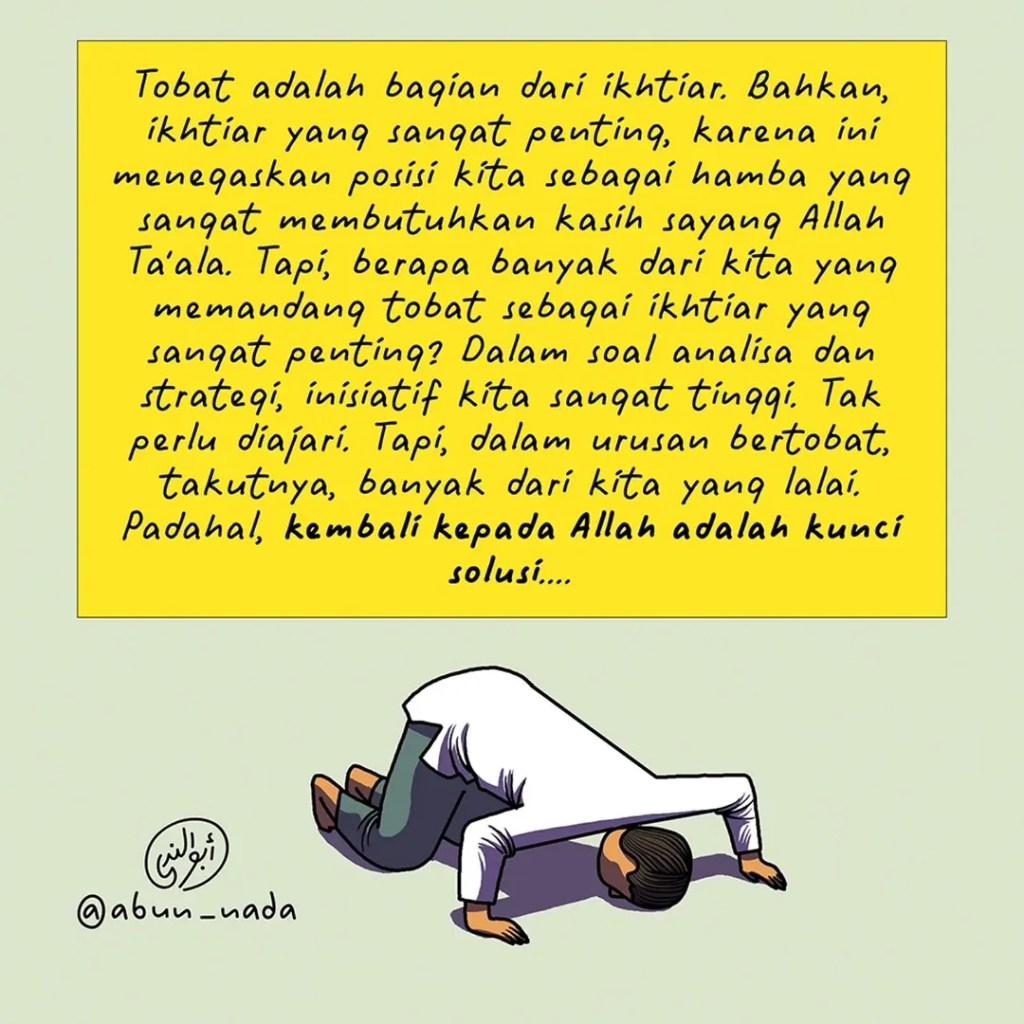 Tobat adalah bagian dari ikhtiar. Bahkan,
ikhtiar yang sangat penting, karena ini
menegaskan posisi kita sebagai hamba yang
sangat membutuhkan kasih sayang Allah
Ta'ala. Tapi, berapa banyak dari kita yang
memandang tobat sebagai ikhtiar yang
sangat penting? Dalam soal analisa dan
strategi, inisiatif kita sangat tinggi. Tak
perlu diajari. Tapi, dalam urusan bertobat,
takutnya, banyak dari kita yang lalai.
Padahal, kembali kepada Allah adalah kunci
solusi....
أبو الندى
@abun_nada